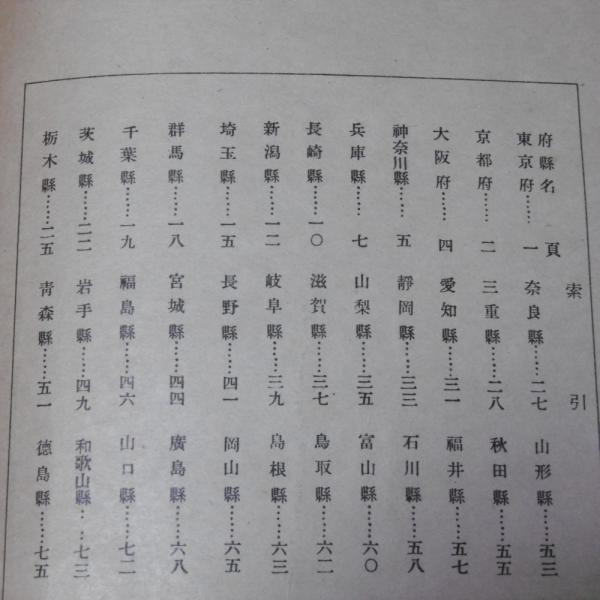 索引
府縣名 頁
東京府……一
京都府……二
大阪府……四
神奈川縣……五
兵庫縣……七
長崎縣……一〇
新潟縣……一二
埼玉縣……一五
群馬縣……一八
千葉縣……一九
茨城縣……二二
栃木縣……二五
奈良縣……二七
三重縣……二八
愛知縣……三一
靜岡縣……三三
山梨縣……三五
滋賀縣……三七
岐阜縣……三九
長野縣……四一
宮城縣……四四
福島縣……四六
岩手縣……四九
靑森縣……五一
山形縣……五三
秋田縣……五五
福井縣……五七
石川縣……五八
富山縣……六〇
鳥取縣……六二
島根縣……六三
岡山縣……六五
廣島縣……六八
山口縣……七二
和歌山縣……七三
德島縣……七五